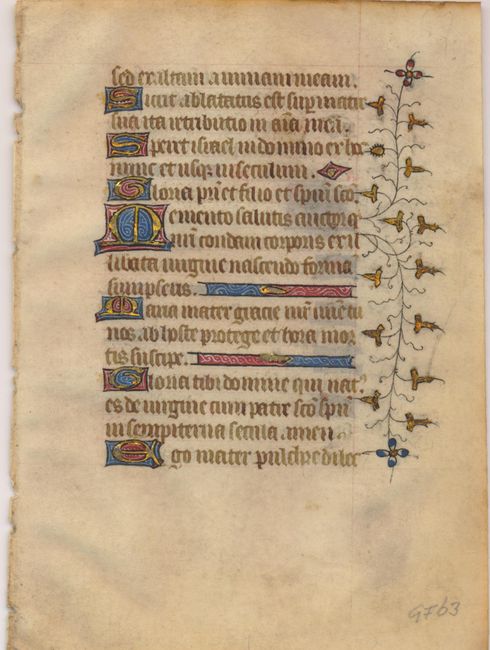 sed exaltavi animam meam.
Sicut ablatatus est sup matre
sua ita retributio in aīa mea.
Speret israel in domino ex hoc
nunc et usqz in seculum.
Gloria pr̄i et filio et spūi sc̄o
Memento salutis auctor q
nr̄i condam corporis ex il
libata virgine nascendo forma
sumpseris.
Maria mater gracie mr̄ mie tu
nos ab hoste protege et hora mor
tis suscipe.
Gloria tibi domine qui nat9
es de virgine cum patre sc̄o spū
in sempiterna secula amen
Ego mater pulchre dilec
4763